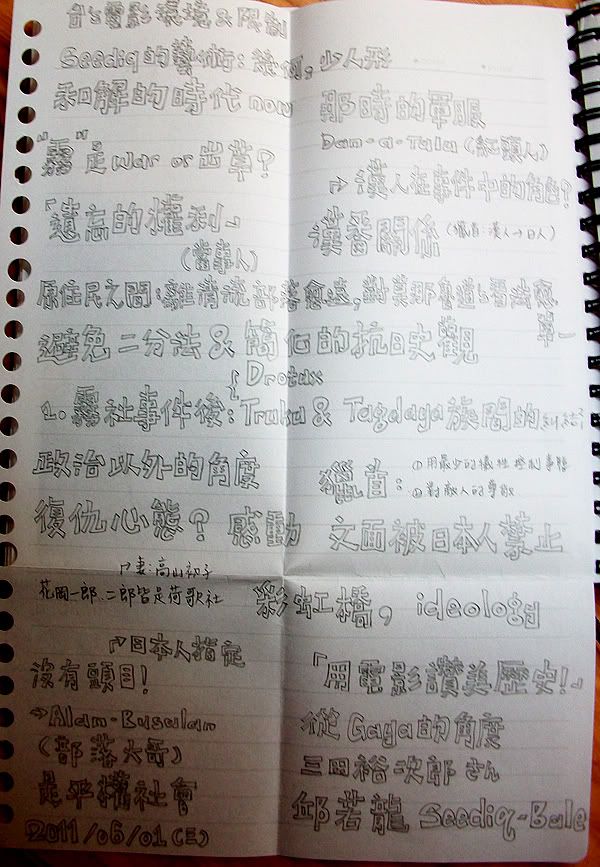 電影環境&限制
Seediq的藝術:幾何。少人形
和解的時代 now
那時的軍服
Dan-a-Tala (紅頭人)
"霧"是 war or 出草?
↱漢人在事件中的角色?
「遺忘的權利」
(當事人)
漢番關係
原住民之間:離清流部落愈遠,對莫那魯道的看法愈單一
避免二分法 & 簡化的抗日史觀
Drotux
2. 霧社事件後: Truku & Tagdaya 族間的糾結?
政治以外的角度
獵首: ①用最少的犧牲控制事態
②對敵人的尊敬
復仇心態? 感動 文面被日本人禁止
↱妻:高山初子
花岡一郎、二郎皆是荷歌社
彩虹橋, ideology
↱日本人指定
沒有頭目!
「用電影讚美歷史!」
→Alan-Busulan
(部落大哥)
從 Gaga 的角度
三田裕次郎さん
是平權社會
邱若龍 Seediq-Bale
2011/06/01(三)